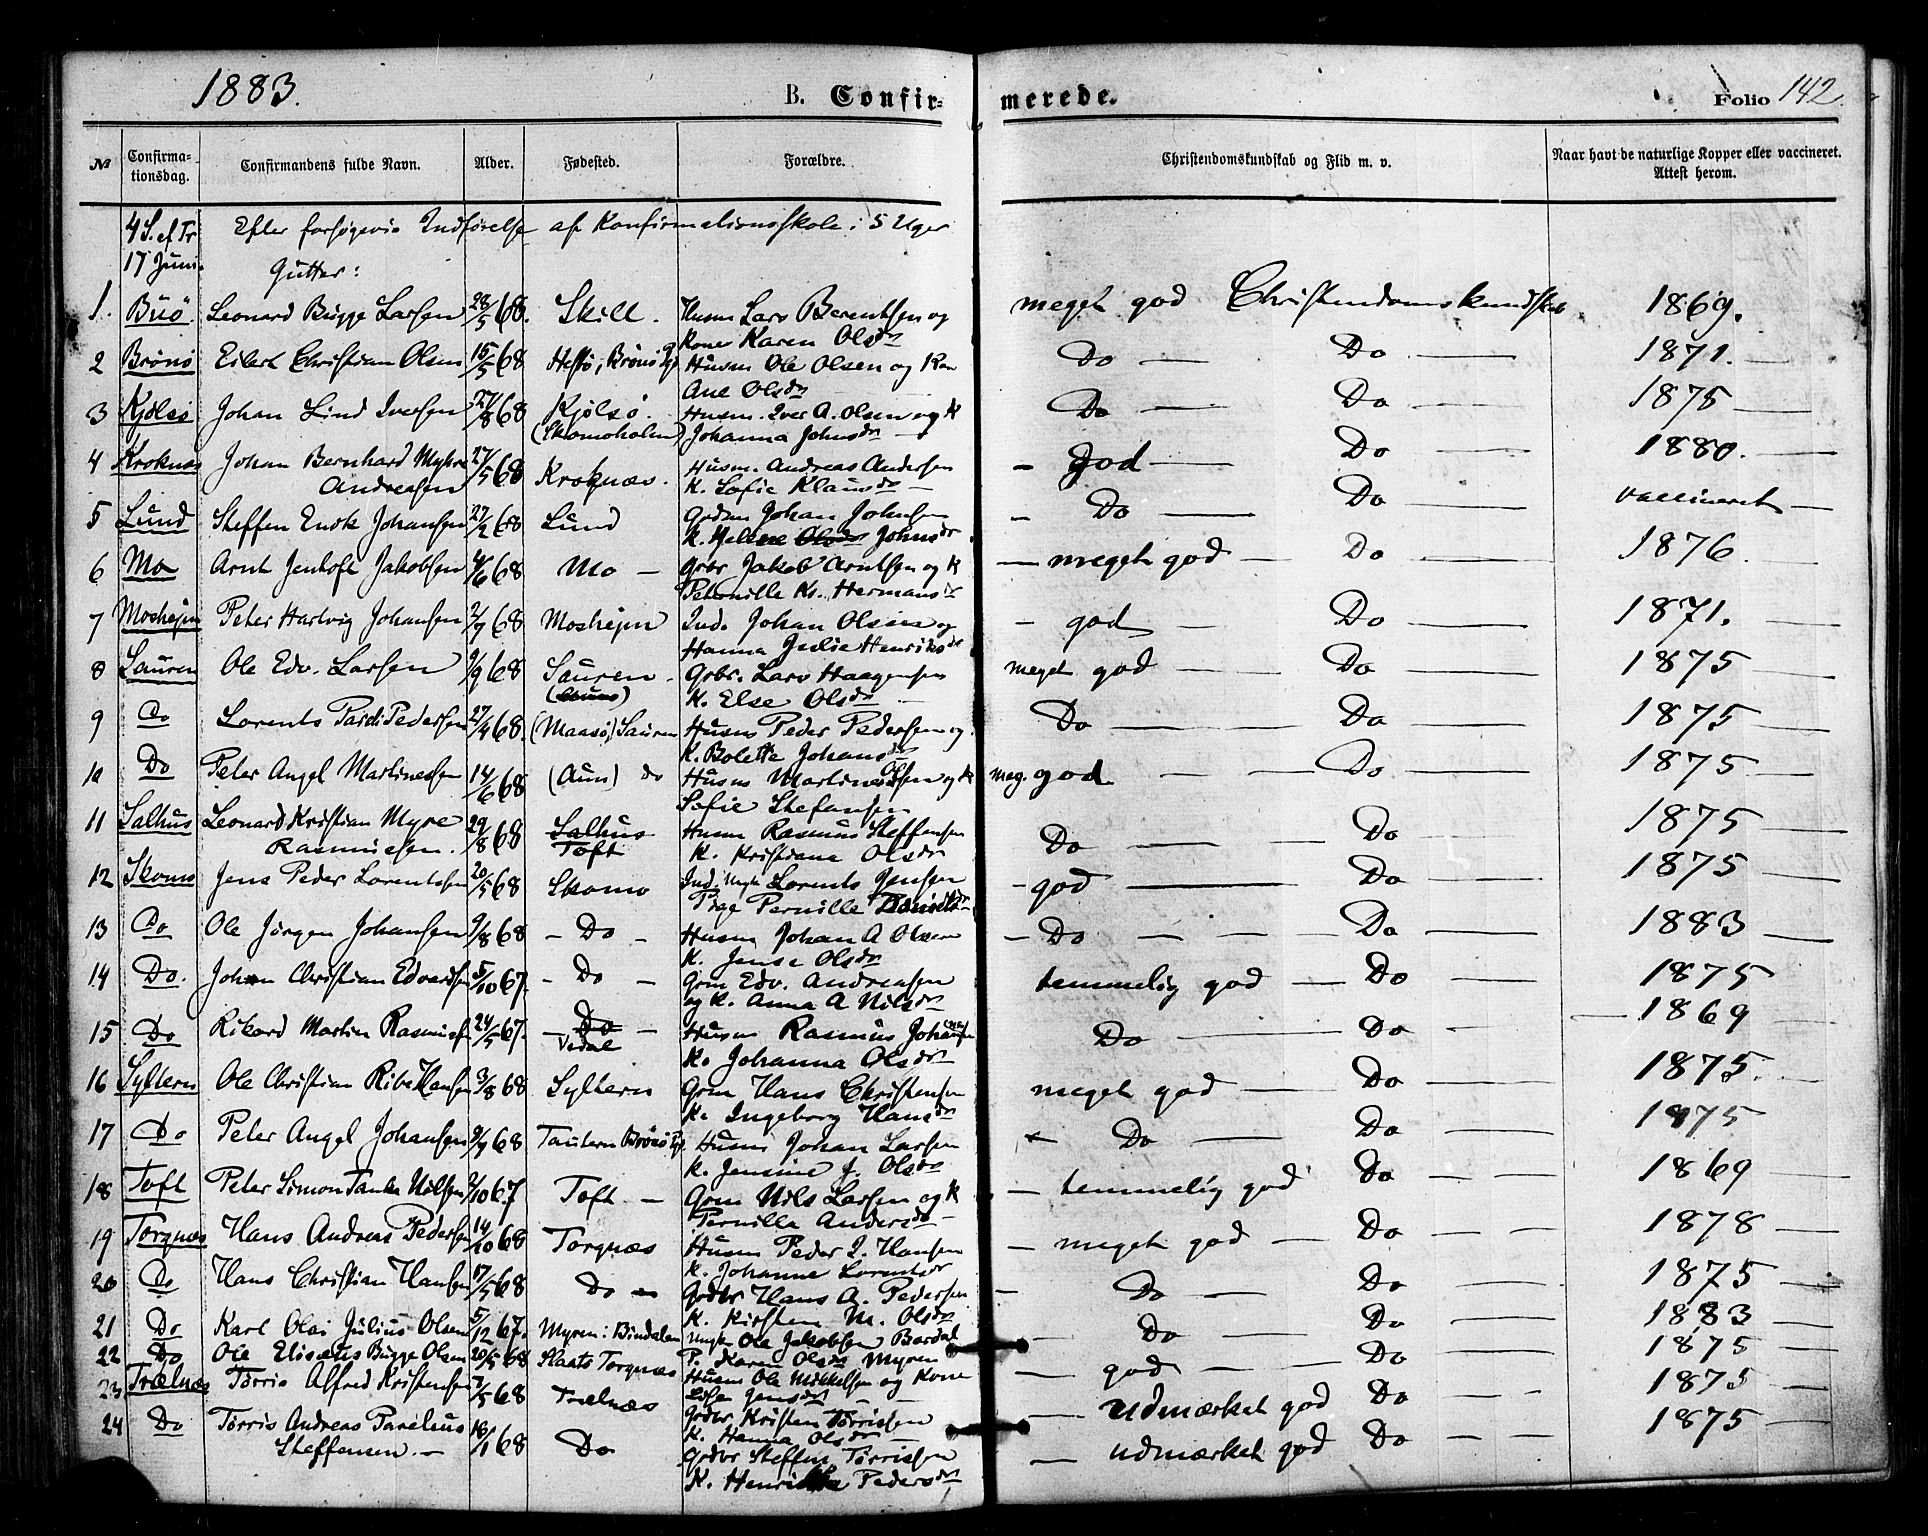 1883.
B. Confir-
merede.
Folio 142.
№ Confirma-tionsdag. Confirmandens fulde Navn. Alder. Fødested. Forældre. Christendomskundskab og Flid m. v. Naar havt de naturlige Kopper eller vaccineret. Attest herom.
4 S. ef Tr Efter forsøgsvis Indførelse af Konfirmationsskole i 5 Uger
17 Juni. Gutter:
1. Buø. Leonard Bugge Larsen 28/5 68. Skill. Husm Lars Berentsen og meget god Christendomskundskab 1869.
Kone Karen Olsdr
2 Brønø Eilert Christian Olsen 15/5 68 Hestø, Brønø Husm Ole Olsen og Kone Do — Do — 1871. —
Ane Olsdr
3 Kjølsø Johan Lind Iversen 27/8 68 Kjølsø. Husm. Iver A. Olsen og K Do — Do — 1875 —
(Skomoholm) Johanna Johnsdr —
4 Kroknæs Johan Bernhard Myhre 27/5 68 Kroknæs. Husm. Andreas Andersen — god — Do — 1880. —
Andreasen K. Sofie Klausdr —
5 Lund Steffen Enok Johansen 27/2 68 Lund Johan Johnsen — Do — Do — vaccineret —
K. Helene Olsdr Johnsdr
6 Mo Arnt Jentoft Jakobsen 4/6 68 Mo — Grbr Jakob Arntsen og K — meget god — Do — 1876.
Petronille Kr. Hermansdr
7 Moshejm Peter Hartvig Johansen 2/7 68 Moshejm Ind. Johan Olsen og — god — Do — 1871. —
Hanna Julie Henriksdr
8 Sauren Ole Edv. Larsen 9/9 68 Sauren. Grbr. Lars Haagensen meget god — Do — 1875 —
K. Else Olsdr —
9 Do Lorents Pedersen 27/4 68. (Maasø) Sauren Husm Peder Pedersen og Do — Do — 1875 —
K. Bolette Johansdr
10 Do Peter Angel Martinessen 14/6 68 (Aun) do Husm Martines Olsen og K meg. god — — Do — 1875 —
Sofie Stefansen
11 Salhus Leonard Kristian Myre 29/8 68 Salhus Husm Rasmus Steffensen Do — Do — 1875 —
Rasmussen. Toft K. Kristiane Olsdr
12 Skomo Jens Peder Lorentsen 20/5 68 Skomo Ind. Ungk Lorents Jensen — god — Do — 1875 —
Pige Pernille
13 Do Ole Jørgen Johansen 9/8 68 — Do — Husm Johan A Olsen — Do — — — Do — 1883 —
K. Jense Olsdr
14 Do. Johan Christian Edvardsen 5/10 67. — Do — Grm Edv. Andreasen temmelig god — Do — 1875 —
og K. Anna A Nilsdr
15 Do Rikard Martin Rasmussen 24/5 67. — Do — Husm Rasmus Johansen Do — Do — 1869 —
Vedal K. Johanna Olsdr
16 Syltern Ole Christian Ribe Hansen 3/8 68 Syltern Grm Hans Christensen meget god — Do — 1875.
K. Ingeborg Hansdr
17 Do Peter Angel Johansen 9/9 68 Tautern Brønø Husm Johan Larsen — Do — Do — 1875
K. Jensine J. Olsdr
18 Toft Peter Simon Tanke Nilsen 2/10 67 Toft — Grm Nils Larsen og K — temmelig god Do — — 1869 —
Pernilla Andersdr —
19 Torgnæs Hans Andreas Pedersen 14/10 68 Torgnæs Husm Peder J. Hansen — meget god — Do — — 1878 —
K. Johanne Lorentsdr
20 Do Hans Christian Hansen 17/5 68 Do — Grdbr Hans A. Pedersen — Do — Do — 1875 —
K. Kirsten M. Olsdr
21 Do Karl Olai Julius Olsen 5/12 67. Myren i Bindalen Ungk Ole Jakobsen Bardal — Do — Do — 1883 —
P. Karen Olsdr Myren
22 Do Ole Eliseus Bugge Olsen 20/5 68 Torgnæs Husm Ole Mikkelsen og Kone — god — Do — 1875 —
Jensdr
23 Trælnæs Tørris Alfred Kristensen 7/5 68 Trælnæs Grdbr Kristen Tørrissen — udmærket god Do — 1875 —
K. Hanna Olsdr —
24 Do Tørris Andreas Parelius 16/1 68 Do Grdbr Steffen Tørrissen — udmærket god Do — 1875 —
Steffensen. — K. Henrikke Pedersdr